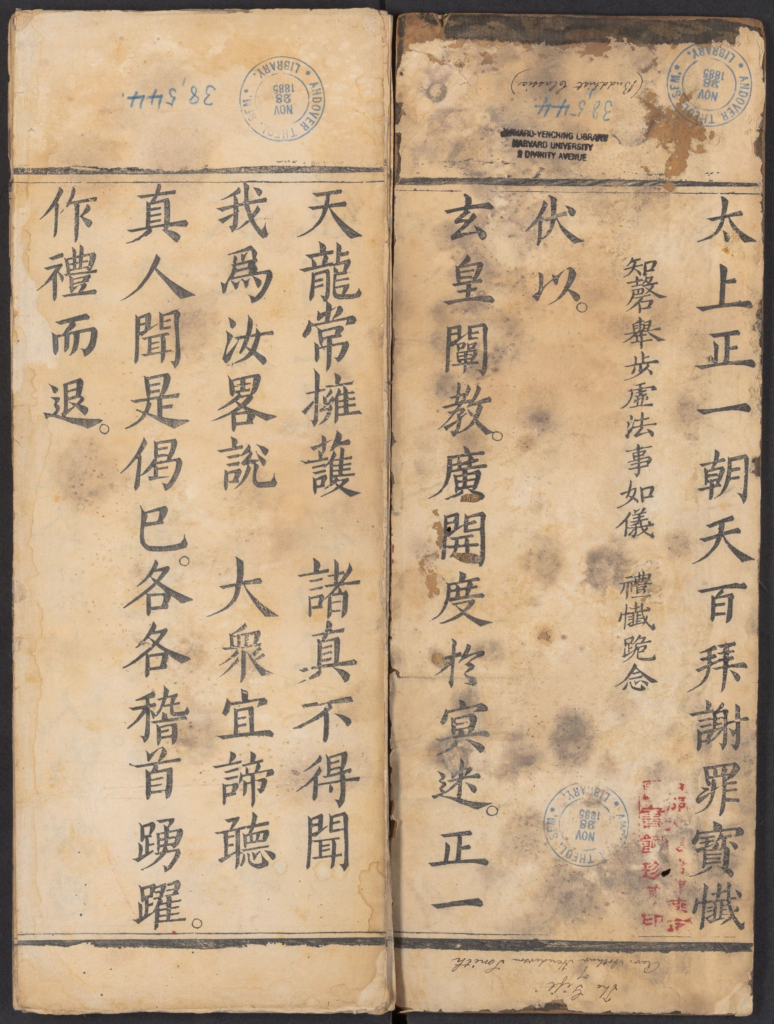 太上正一朝天百拜謝罪寶懺
知磬舉步虛法事如儀　禮懺跪念
伏以。
玄皇闡教。廣開度於冥迷。正一
天龍常擁護　諸真不得聞
我爲汝畧說　大衆宜諦聽
真人聞是偈已。各各稽首踴躍。
作禮而退。
38,544
ANDOVER THEOL. SEM. LIBRARY.
NOV
28
1885
38,544
(Buddhist Classic)
ANDOVER THEOL. SEM. LIBRARY.
NOV
28
1885
HARVARD-YENCHING LIBRARY
HARVARD UNIVERSITY
2 DIVINITY AVENUE
THEOL. SEM. LIBRARY.
NOV
28
1885
The Gift of
Rev. Arthur Henderson Smith